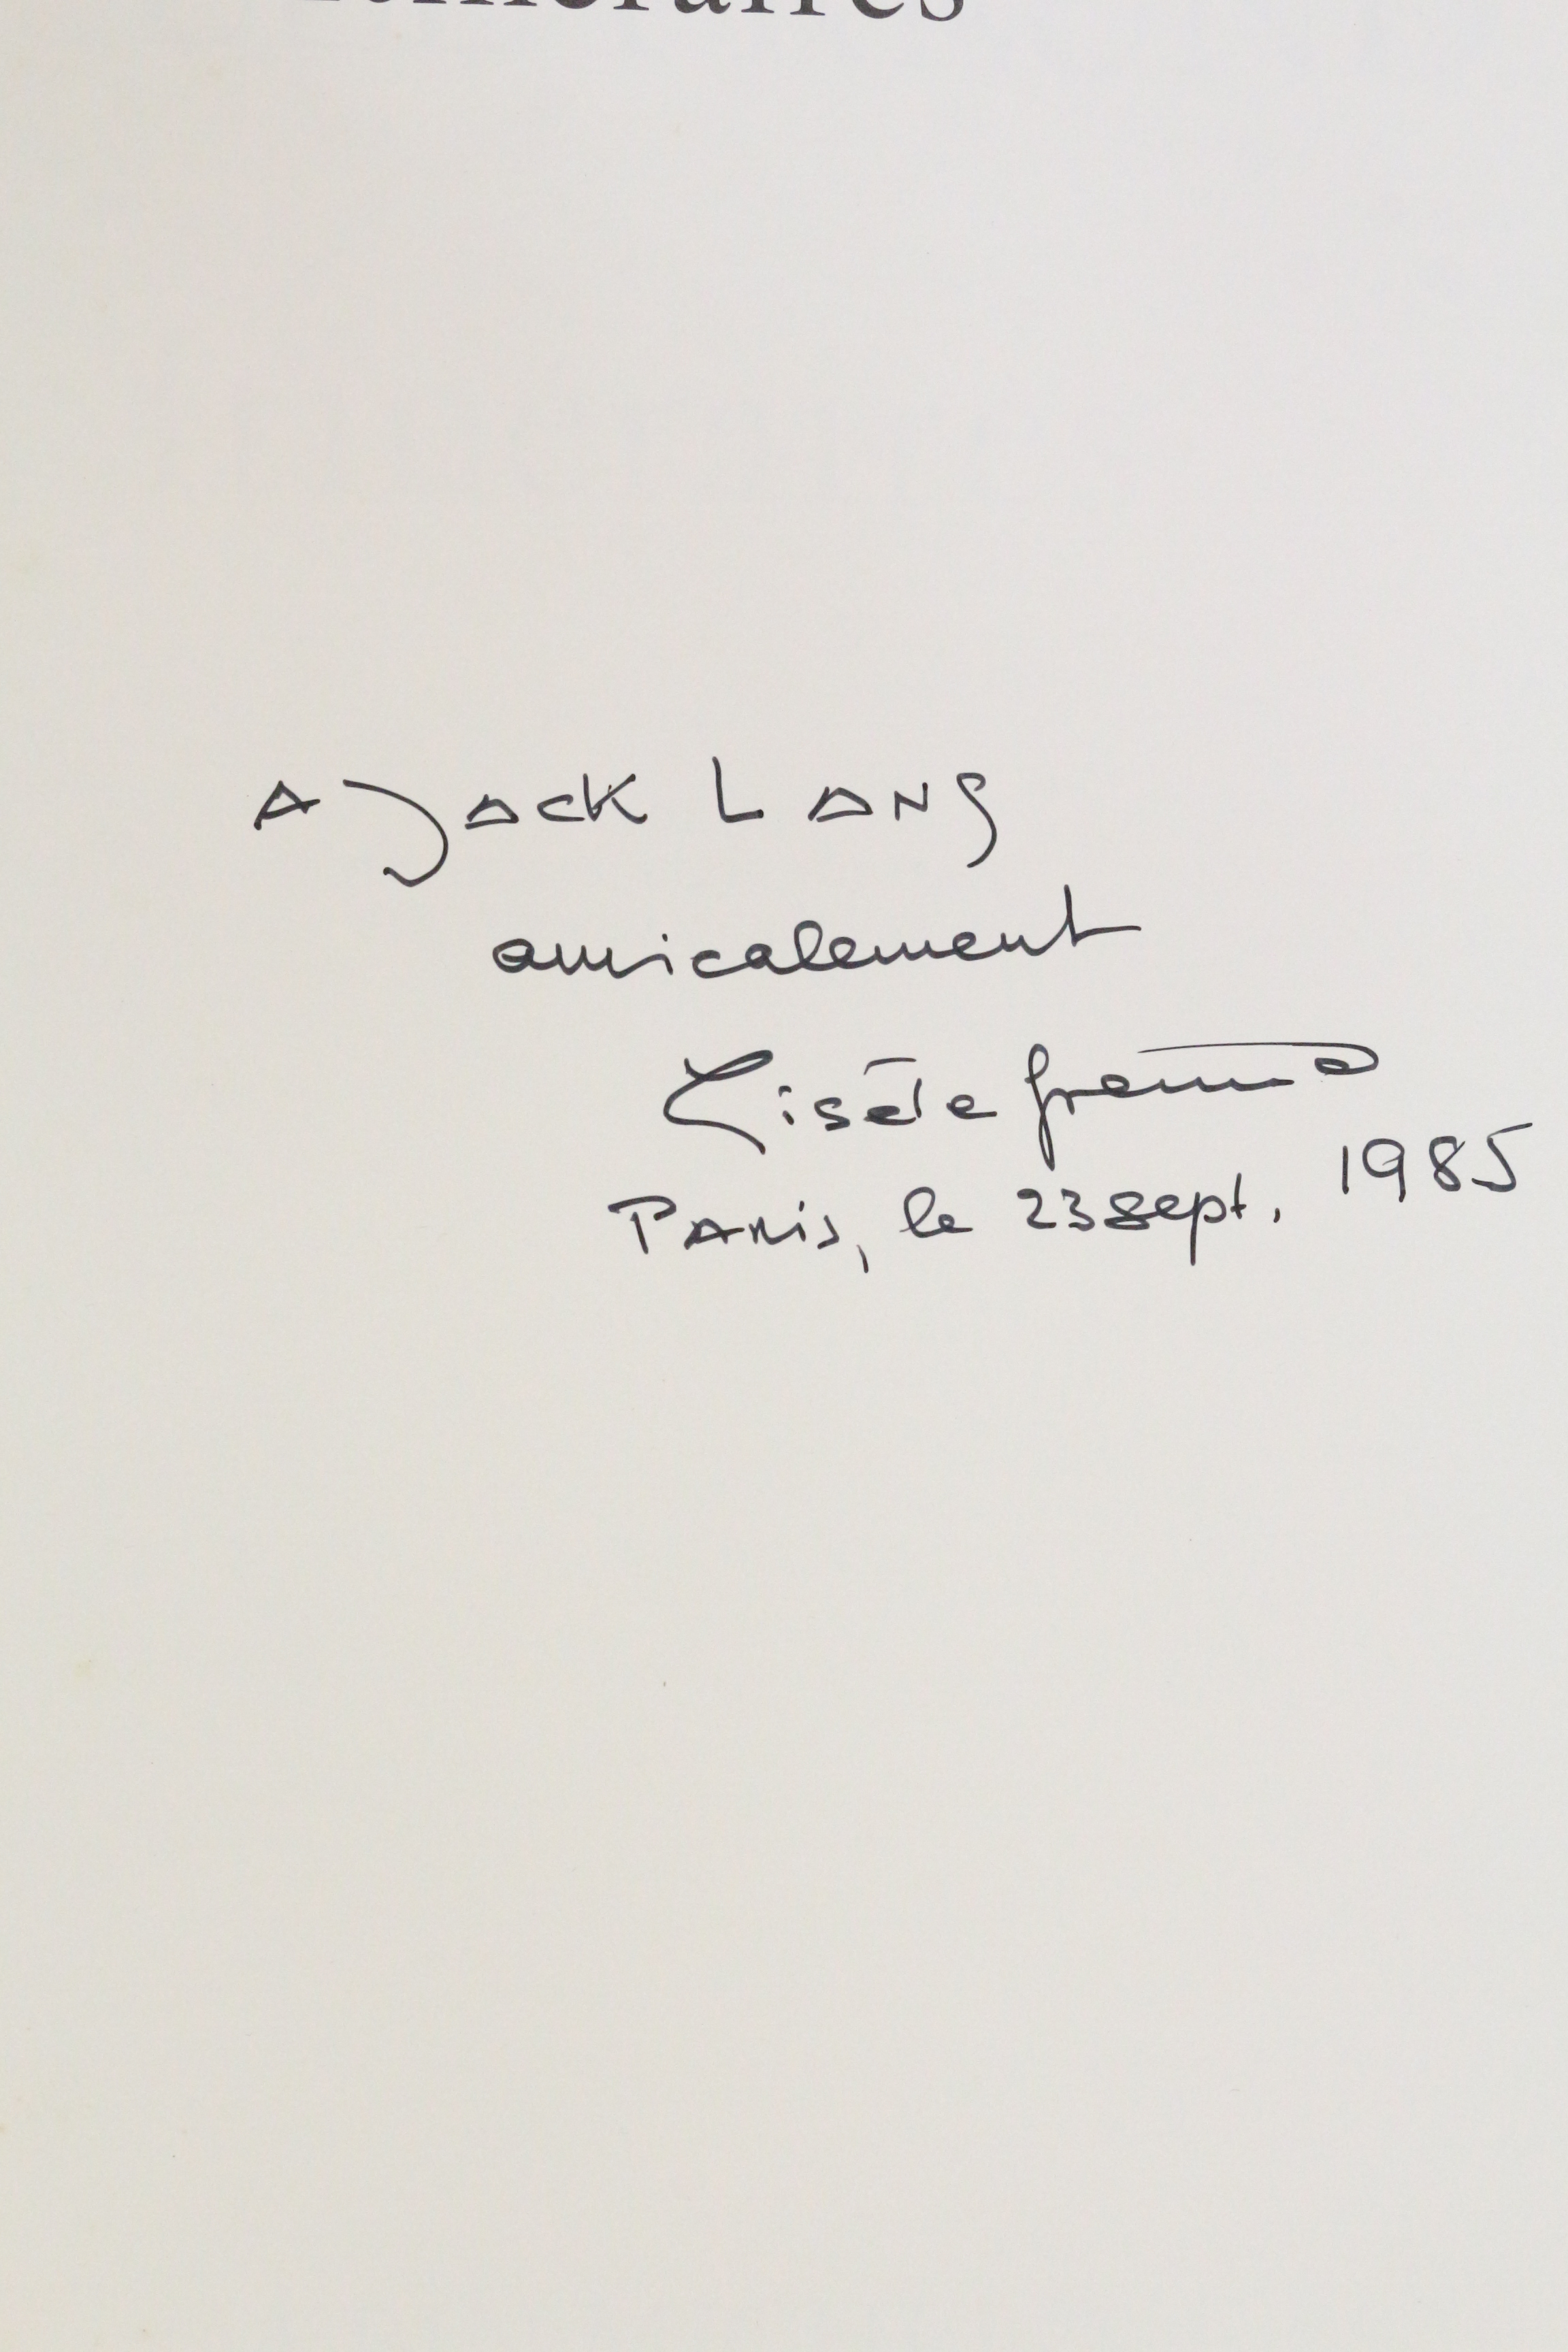 Itinéraires
A Jack Lang
amicalement
Gisèle Freund
Paris, le 23 sept. 1985